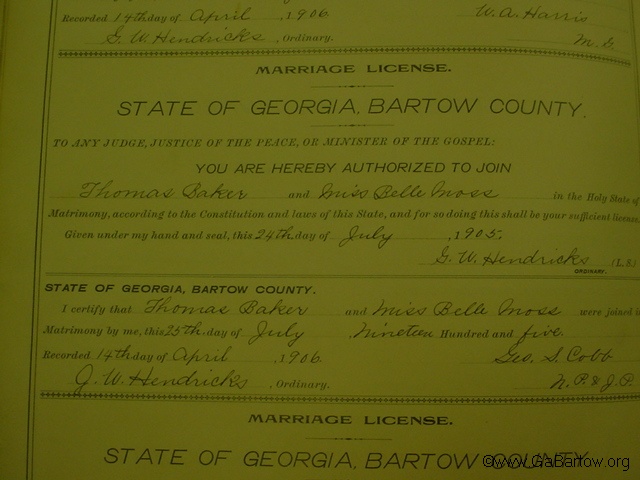 Recorded 14th day of April, 1906. W. A. Harris
G. W. Hendricks, Ordinary. M. G.
MARRIAGE LICENSE.
STATE OF GEORGIA, BARTOW COUNTY.
TO ANY JUDGE, JUSTICE OF THE PEACE, OR MINISTER OF THE GOSPEL:
YOU ARE HEREBY AUTHORIZED TO JOIN
Thomas Baker and Miss Belle Moss in the Holy State of
Matrimony, according to the Constitution and laws of this State, and for so doing this shall be your sufficient license.
Given under my hand and seal, this 24th day of July, 1905.
G. W. Hendricks (L. S.)
ORDINARY.
STATE OF GEORGIA, BARTOW COUNTY.
I certify that Thomas Baker and Miss Belle Moss were joined in
Matrimony by me, this 25th day of July, Nineteen Hundred and five.
Recorded 14th day of April, 1906 Geo. S. Cobb
G. W. Hendricks, Ordinary. N. P. & J. P.
MARRIAGE LICENSE.
STATE OF GEORGIA, BARTOW COUNTY.
©www.GaBartow.org